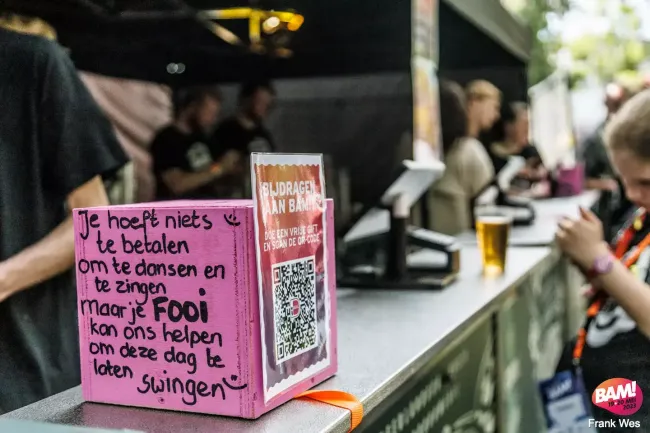 Je hoeft niets
te betalen
om te dansen en
te zingen
maar je FOOI
kan ons helpen
om deze dag te
laten swingen
BIJDRAGEN
AAN BAM!?
DOE EEN VRIJE GIFT
EN SCAN DE QR-CODE
BAM!
Frank Wes